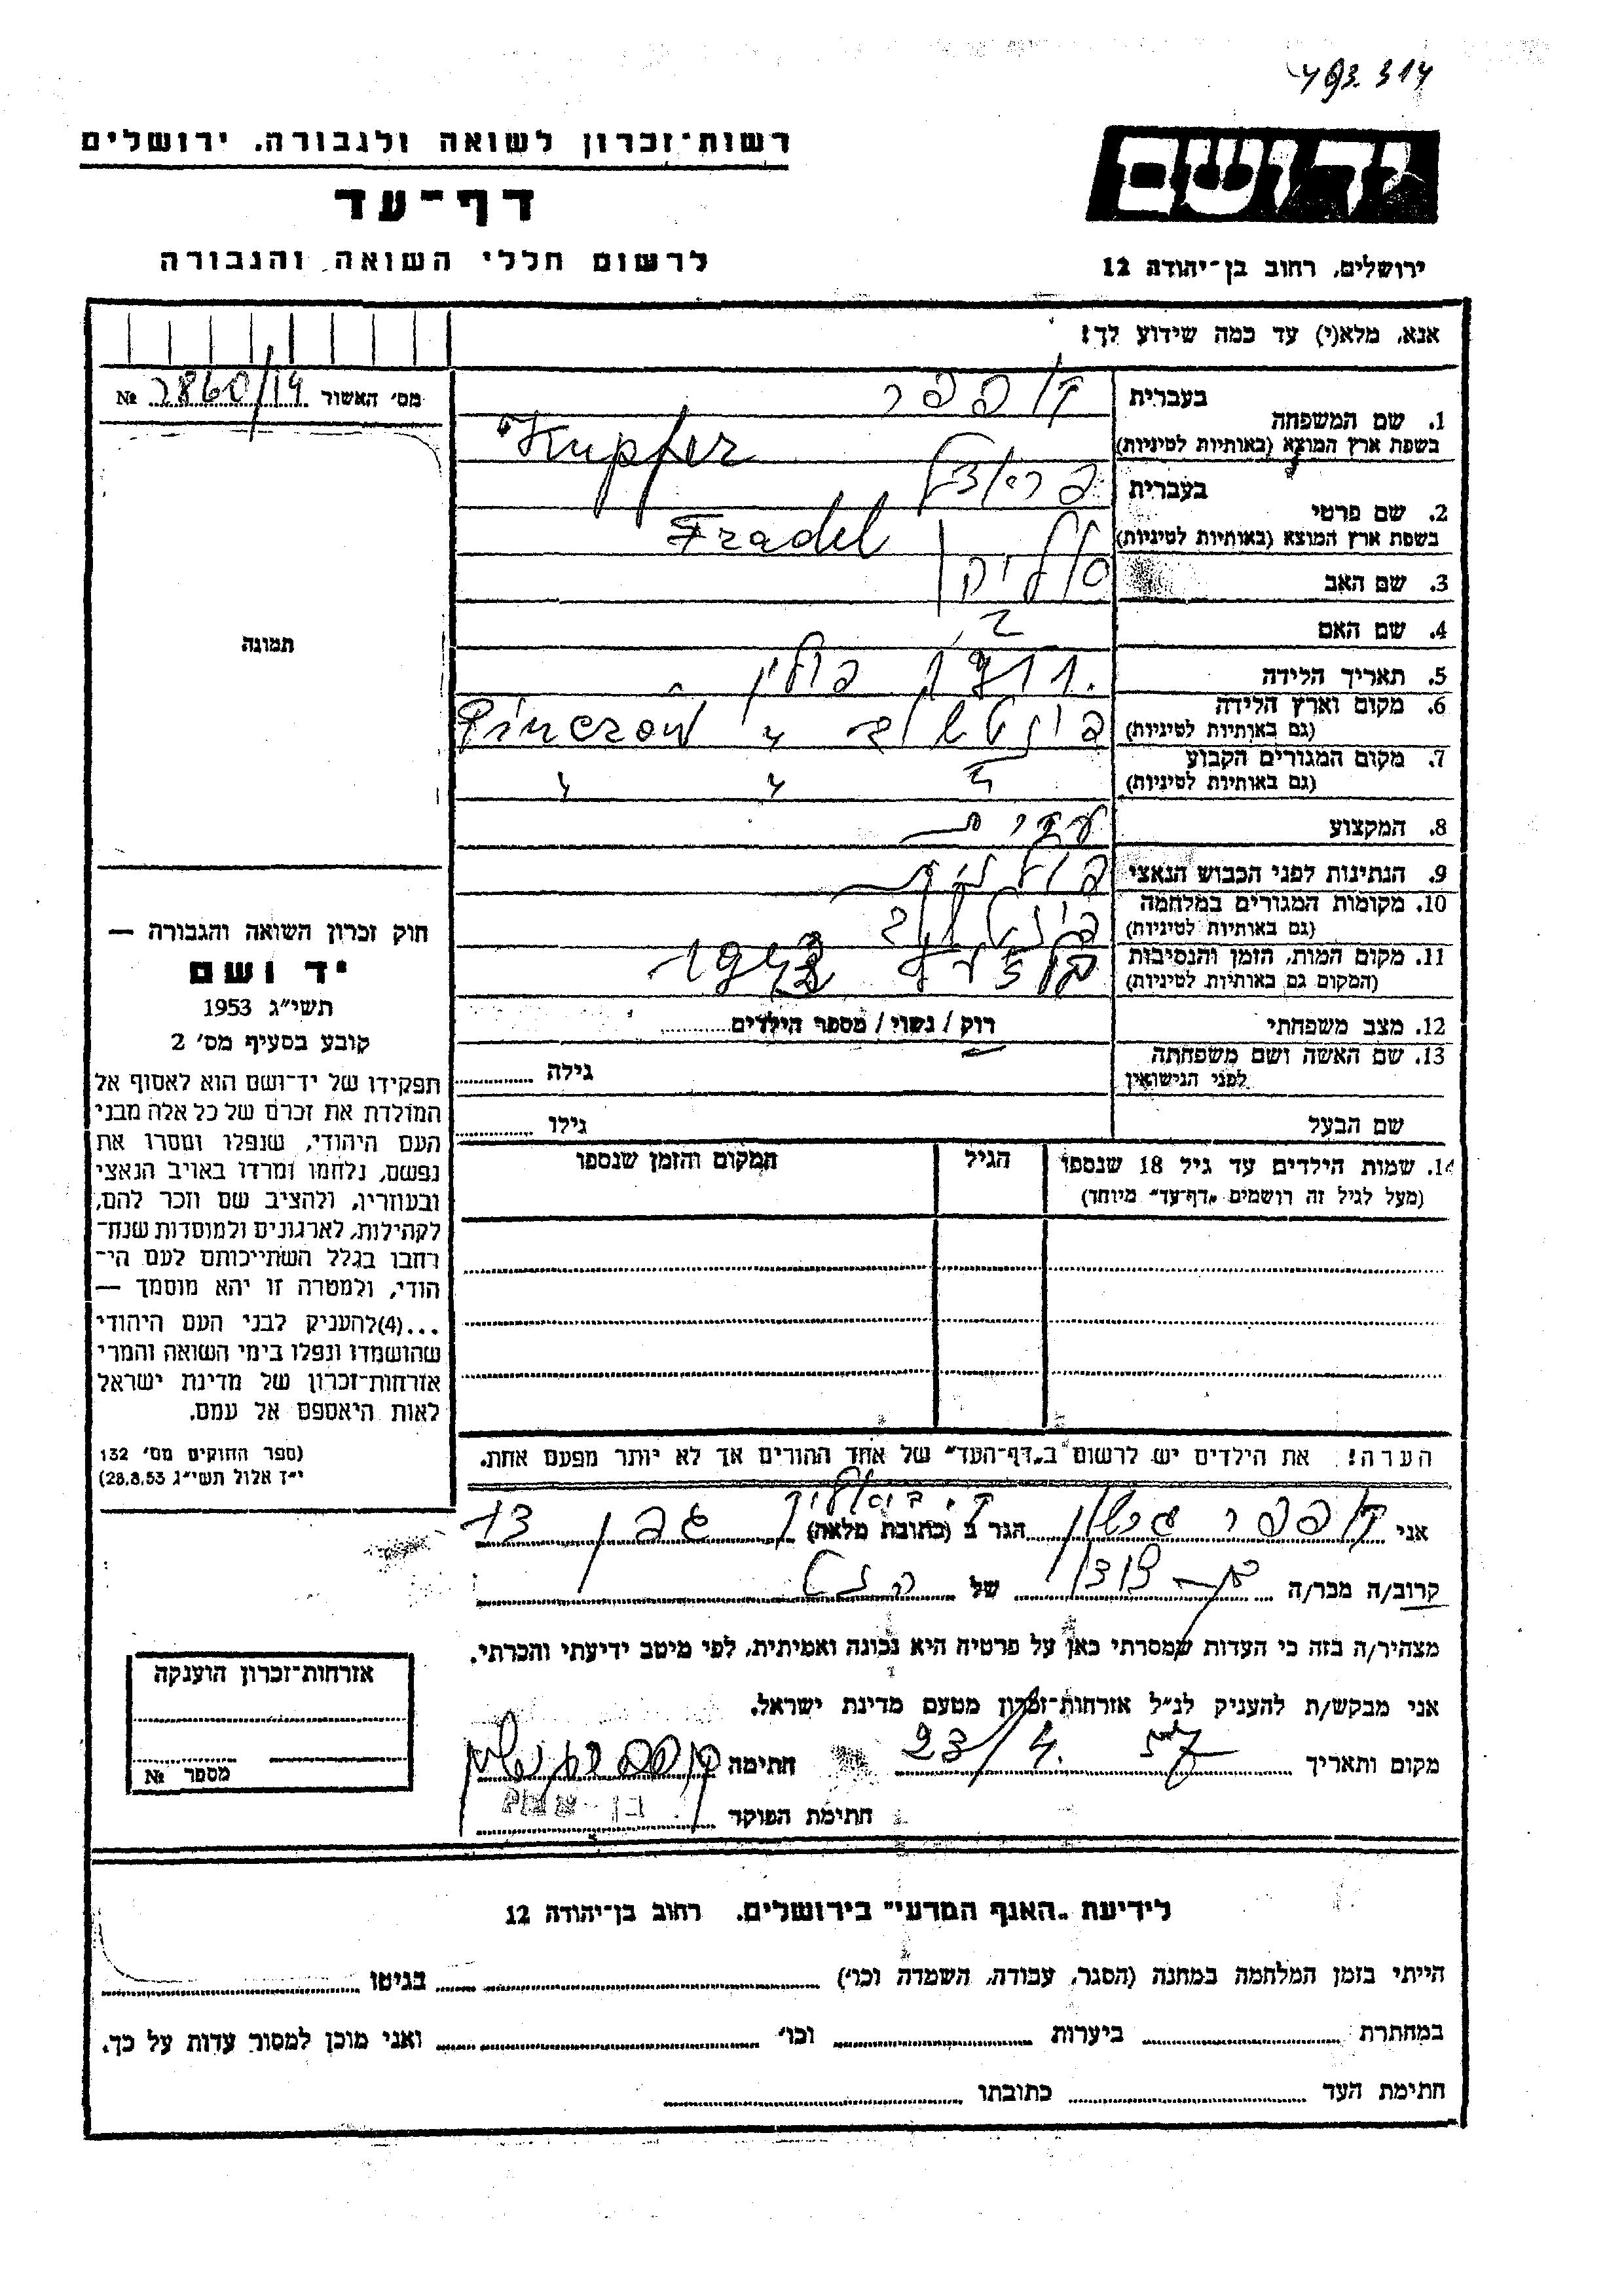 493.314
רשות־זכרון לשואה ולגבורה, ירושלים
דף־עד
לרשום חללי השואה והגבורה
יד ושם
ירושלים, רחוב בן־יהודה 12
אנא, מלא(י) עד כמה שידוע לך!
מס׳ האשור 2860/19 №
1. שם המשפחה
בעברית
קופפר
בשפת ארץ המוצא (באותיות לטיניות)
Kupfer
2. שם פרטי
בעברית
בשפת ארץ המוצא (באותיות לטיניות)
Fradel
3. שם האב
4. שם האם
?
5. תאריך הלידה
1911 פולין
6. מקום וארץ הלידה
(גם באותיות לטיניות)
Pinczow
7. מקום המגורים הקבוע
(גם באותיות לטיניות)
״ ״ ״
8. המקצוע
9. הנתינות לפני הכבוש הנאצי
פולנית
10. מקומות המגורים במלחמה
(גם באותיות לטיניות)
11. מקום המות, הזמן והנסיבות
(המקום גם באותיות לטיניות)
1942
12. מצב משפחתי
רוק / נשוי / מספר הילדים
13. שם האשה ושם משפחתה
לפני הנישואין
גילה
שם הבעל
גילו
14. שמות הילדים עד גיל 18 שנספו
(מעל לגיל זה רושמים „דף־עד״ מיוחד)
הגיל
המקום והזמן שנספו
הערה! את הילדים יש לרשום ב„דף־העד״ של אחד ההורים אך לא יותר מפעם אחת.
תמונה
חוק זכרון השואה והגבורה —
יד ושם
תשי״ג 1953
קובע בסעיף מס׳ 2
תפקידו של יד־ושם הוא לאסוף אל
המולדת את זכרם של כל אלה מבני
העם היהודי, שנפלו ומסרו את
נפשם, נלחמו ומרדו באויב הנאצי
ובעוזריו, ולהציב שם וזכר להם,
לקהילות, לארגונים ולמוסדות שנח־
רחבו בגלל השתייכותם לעם הי־
הודי, ולמטרה זו יהא מוסמך —
...(4)להעניק לבני העם היהודי
שהושמדו ונפלו בימי השואה והמרי
אזרחות־זכרון של מדינת ישראל
לאות היאספם אל עמם.
(ספר החוקים מס׳ 132
י״ד אלול תשי״ג 28.8.53)
אני קופפר הגר ב (כתובת מלאה) ק. ביאליק 13
קרוב/ה מכר/ה בן־דוד של
מצהיר/ה בזה כי העדות שמסרתי כאן על פרטיה היא נכונה ואמיתית, לפי מיטב ידיעתי והכרתי.
אני מבקש/ת להעניק לנ״ל אזרחות־זכרון מטעם מדינת ישראל.
מקום ותאריך 23/4. 57 חתימה
חתימת הפוקד
אזרחות־זכרון הוענקה
מספר №
לידיעת „האגף המדעי״ בירושלים, רחוב בן־יהודה 12
הייתי בזמן המלחמה במחנה (הסגר, עבודה, השמדה וכו׳) בגיטו
במחתרת ביערות וכו׳ ואני מוכן למסור עדות על כך.
חתימת העד כתובתו